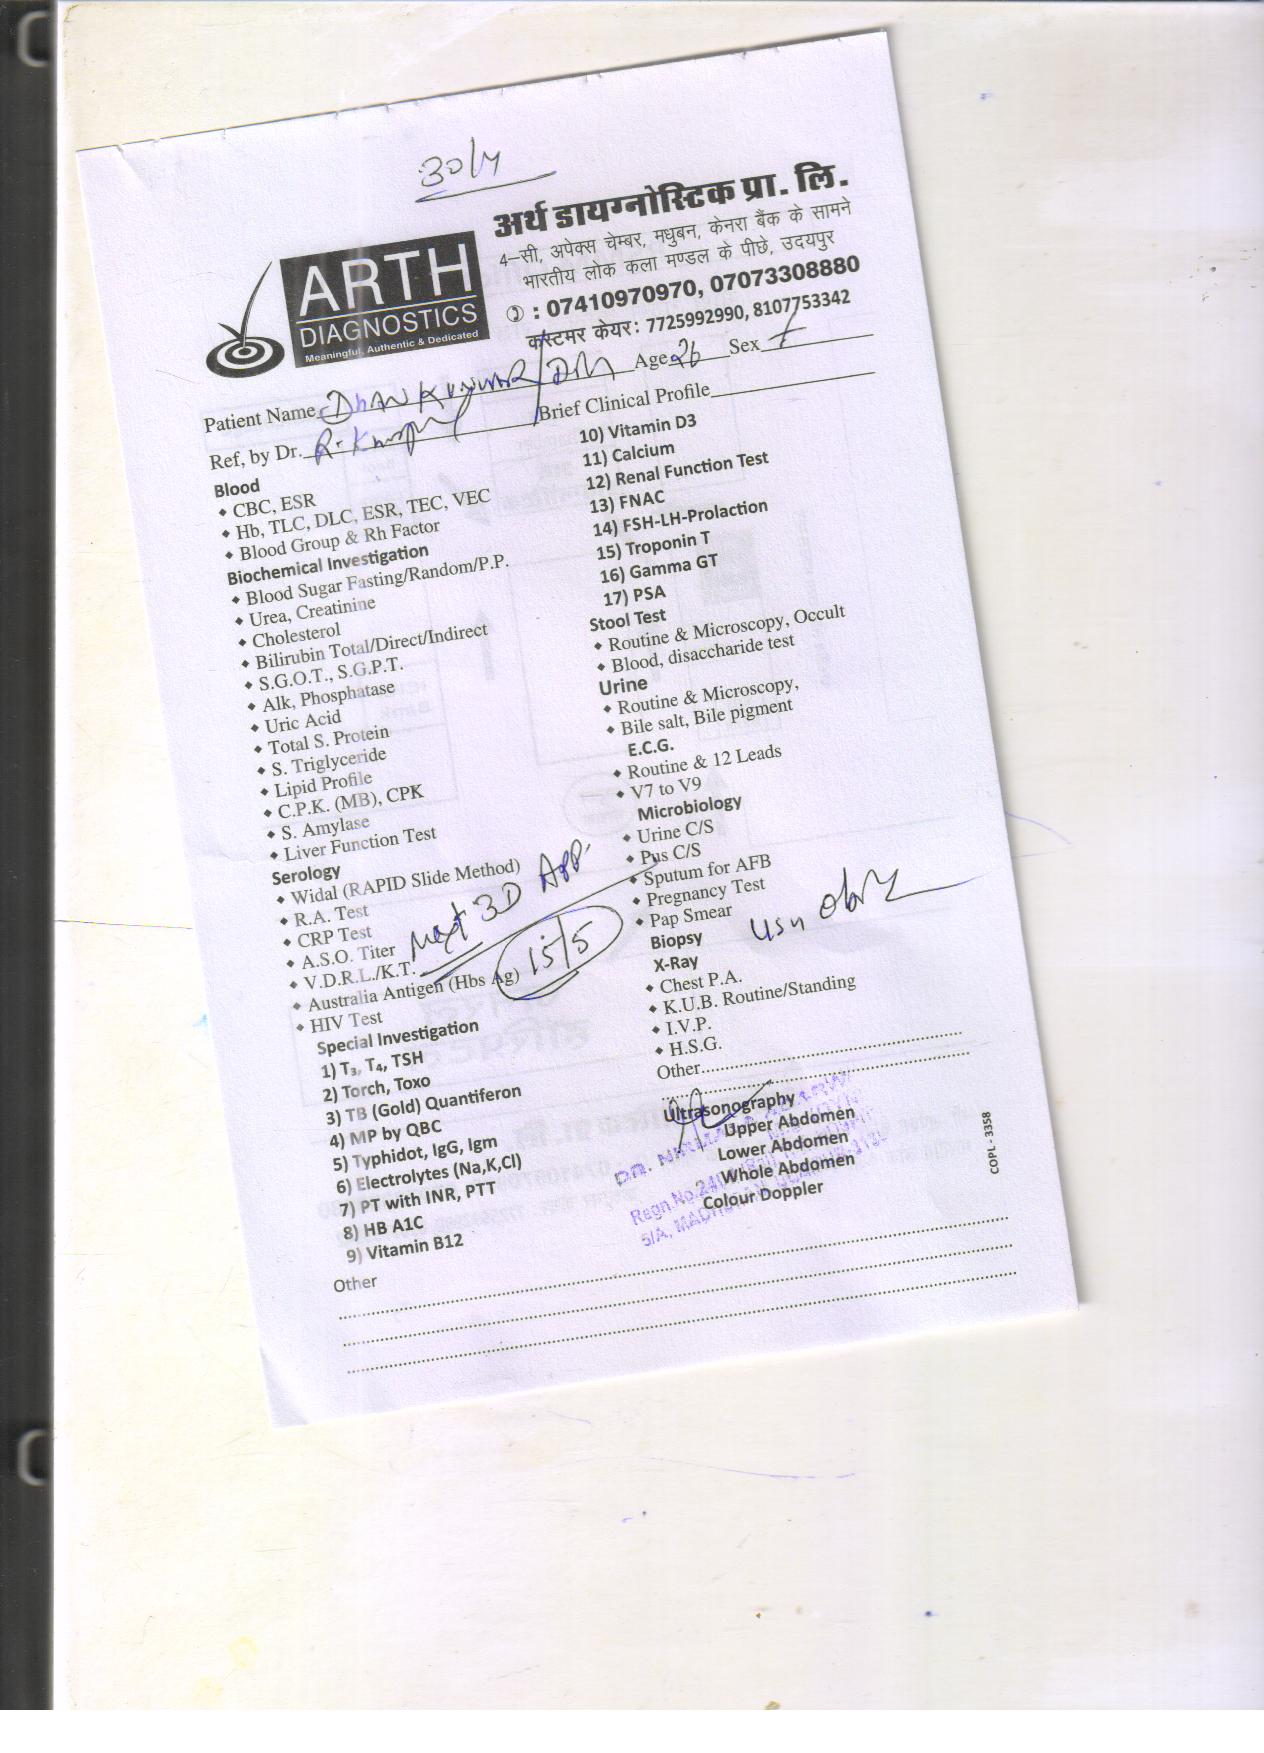 30/4
अर्थ डायग्नोस्टिक प्रा. लि.
4-सी, अपेक्स चेम्बर, मधुबन, केनरा बैंक के सामने
भारतीय लोक कला मण्डल के पीछे, उदयपुर
: 07410970970, 07073308880
कस्टमर केयर: 7725992990, 8107753342
ARTH
DIAGNOSTICS
Meaningful, Authentic & Dedicated
Patient Name Age 26 Sex F
Ref, by Dr. Brief Clinical Profile
Blood
CBC, ESR
Hb, TLC, DLC, ESR, TEC, VEC
Blood Group & Rh Factor
Biochemical Investigation
Blood Sugar Fasting/Random/P.P.
Urea, Creatinine
Cholesterol
Bilirubin Total/Direct/Indirect
S.G.O.T., S.G.P.T.
Alk, Phosphatase
Uric Acid
Total S. Protein
S. Triglyceride
Lipid Profile
C.P.K. (MB), CPK
S. Amylase
Liver Function Test
Serology
Widal (RAPID Slide Method)
R.A. Test
CRP Test
A.S.O. Titer
V.D.R.L./K.T.
Australia Antigen (Hbs Ag)
HIV Test
Next 3D App.
15/5
Special Investigation
1) T₃, T₄, TSH
2) Torch, Toxo
3) TB (Gold) Quantiferon
4) MP by QBC
5) Typhidot, IgG, Igm
6) Electrolytes (Na,K,Cl)
7) PT with INR, PTT
8) HB A1C
9) Vitamin B12
Other
10) Vitamin D3
11) Calcium
12) Renal Function Test
13) FNAC
14) FSH-LH-Prolaction
15) Troponin T
16) Gamma GT
17) PSA
Stool Test
Routine & Microscopy, Occult
Blood, disaccharide test
Urine
Routine & Microscopy,
Bile salt, Bile pigment
E.C.G.
Routine & 12 Leads
V7 to V9
Microbiology
Urine C/S
Pus C/S
Sputum for AFB
Pregnancy Test
Pap Smear
Biopsy
X-Ray
Chest P.A.
K.U.B. Routine/Standing
I.V.P.
H.S.G.
Other
Ultrasonography
Upper Abdomen
Lower Abdomen
Whole Abdomen
Colour Doppler
COPL - 3358